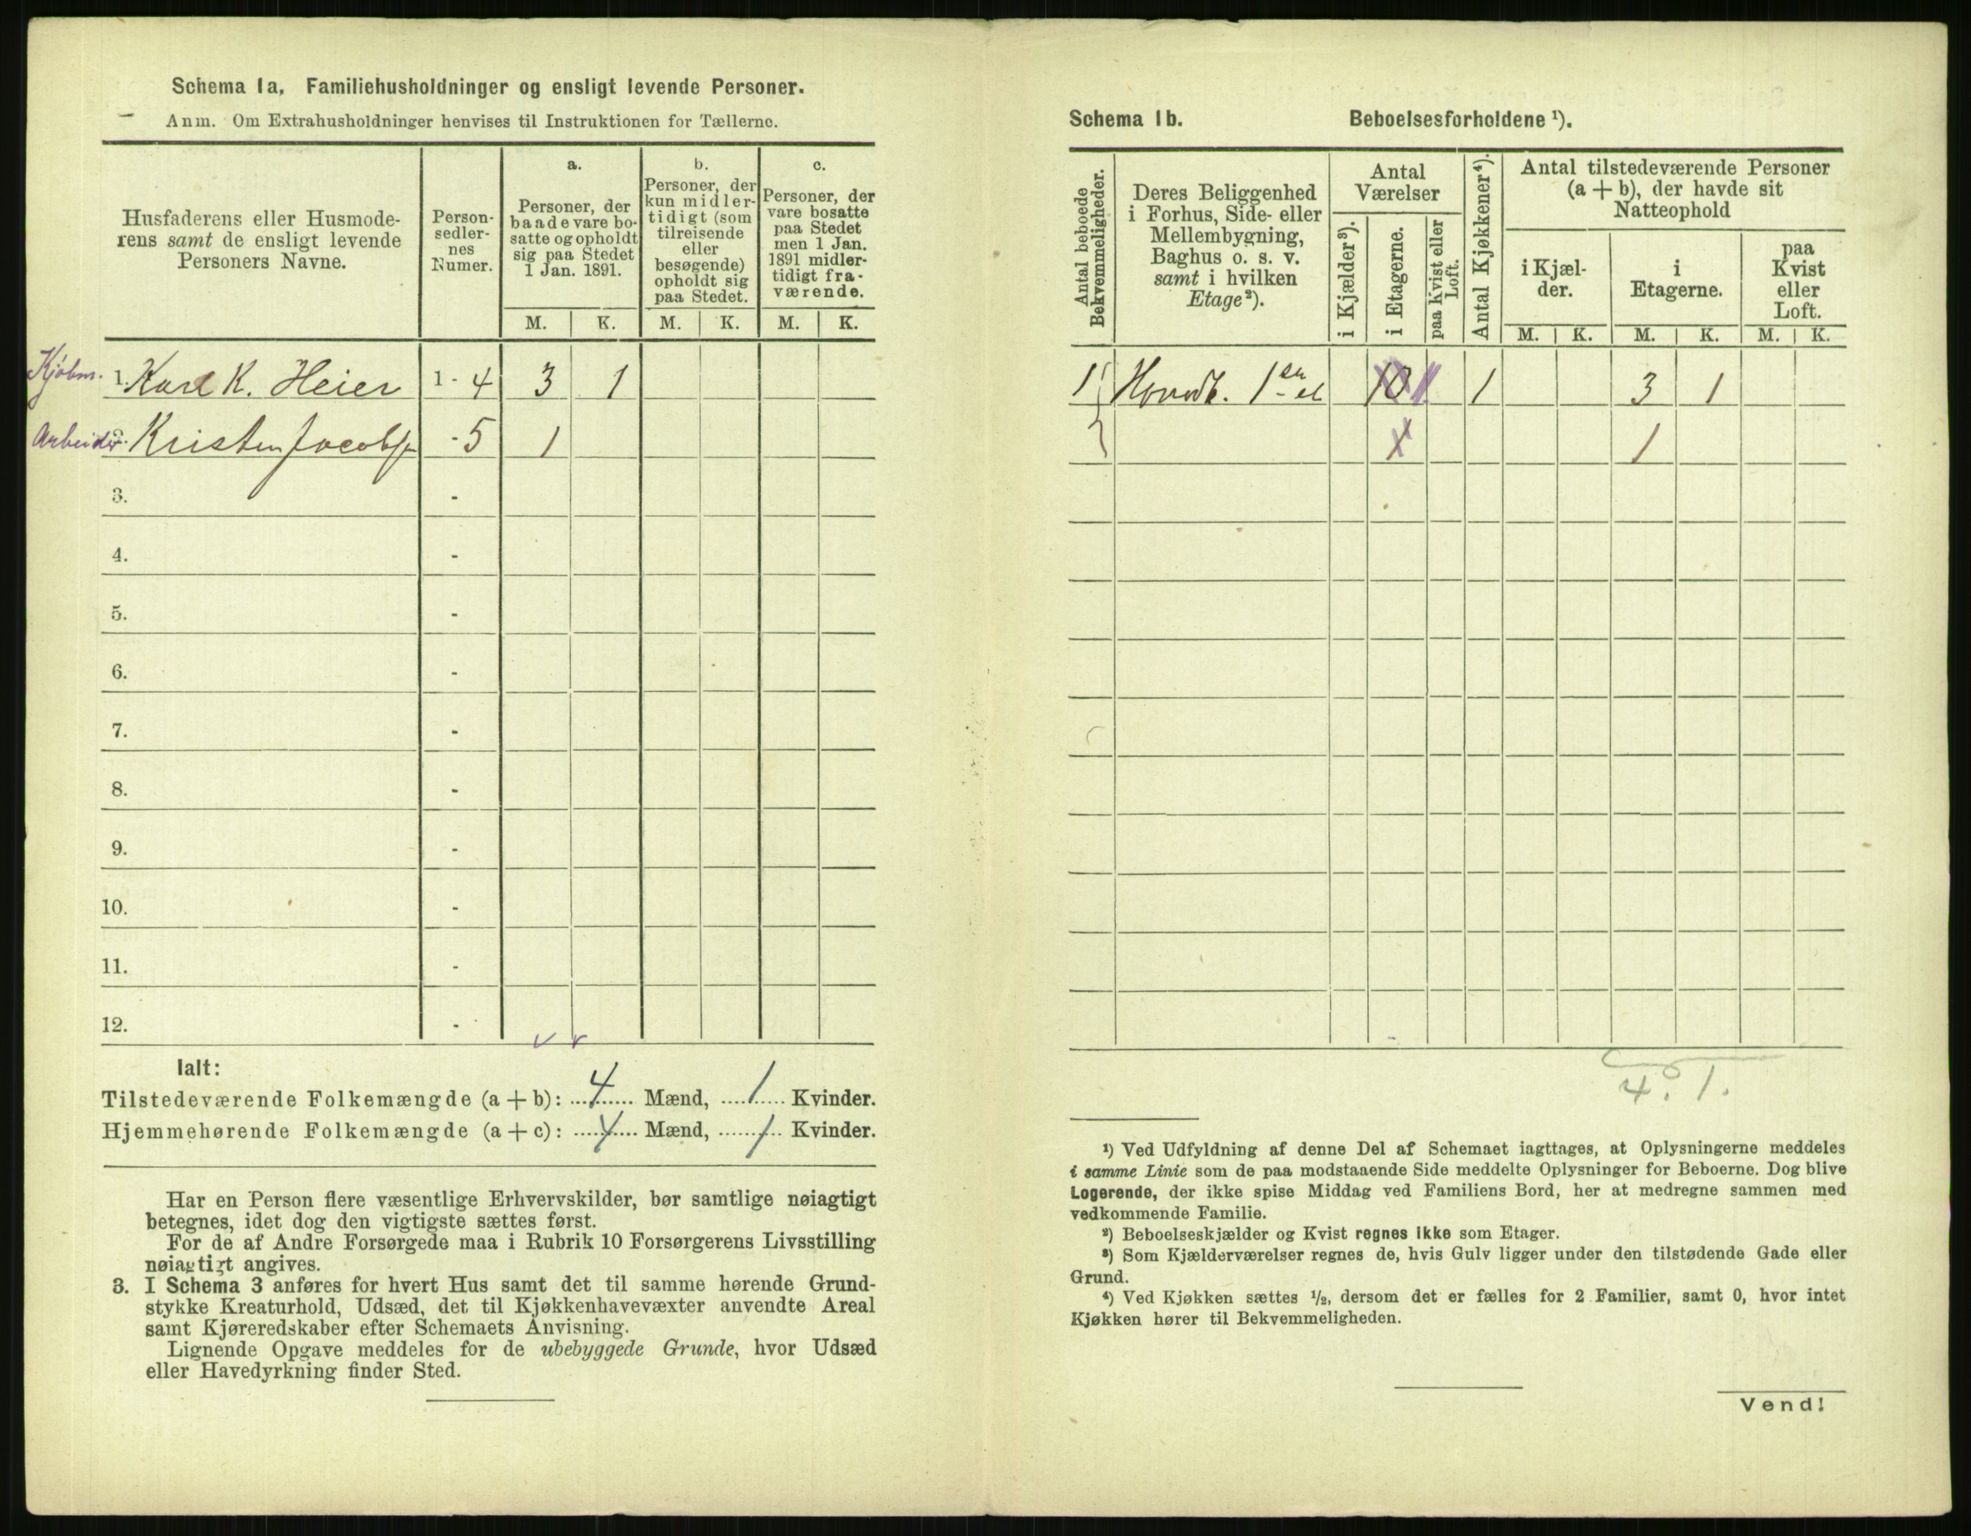 Schema 1a. Familiehusholdninger og ensligt levende Personer.
Anm. Om Extrahusholdninger henvises til Instruktionen for Tællerne.
Husfaderens eller Husmode-
rens samt de ensligt levende
Personers Navne.
Person-
sedler-
nes
Numer.
a.
Personer, der
baade vare bo-
satte og opholdt
sig paa Stedet
1 Jan. 1891.
b.
Personer, der
kun midler-
tidigt (som
tilreisende
eller
besøgende)
opholdt sig
paa Stedet.
c.
Personer, der
vare bosatte
paa Stedet
men 1 Jan.
1891 midler-
tidigt fra-
værende.
M. K. M. K. M. K.
Kjøbm. 1. Karl K. Heier 1 - 4 3 1
Arbeider Kristen Jacobsen - 5 1
3. -
4. -
5. -
6. -
7. -
8. -
9. -
10. -
11. -
12. -
Ialt:
Tilstedeværende Folkemængde (a + b): 4 Mænd, 1 Kvinder.
Hjemmehørende Folkemængde (a + c): 4 Mænd, 1 Kvinder.
Har en Person flere væsentlige Erhvervskilder, bør samtlige nøiagtigt
betegnes, idet dog den vigtigste sættes først.
For de af Andre Forsørgede maa i Rubrik 10 Forsørgerens Livsstilling
nøiagtigt angives.
3. I Schema 3 anføres for hvert Hus samt det til samme hørende Grund-
stykke Kreaturhold, Udsæd, det til Kjøkkenhavevæxter anvendte Areal
samt Kjøreredskaber efter Schemaets Anvisning.
Lignende Opgave meddeles for de ubebyggede Grunde, hvor Udsæd
eller Havedyrkning finder Sted.
Schema 1b. Beboelsesforholdene ¹).
Antal beboede
Bekvemmeligheder.
Deres Beliggenhed
i Forhus, Side- eller
Mellembygning,
Baghus o. s. v.
samt i hvilken
Etage²).
Antal
Værelser
i Kjælder³).
i Etagerne.
paa Kvist eller
Loft.
Antal Kjøkkener⁴).
Antal tilstedeværende Personer
(a + b), der havde sit
Natteophold
i Kjæl-
der.
i
Etagerne.
paa
Kvist
eller
Loft.
M. K. M. K. M. K.
1 Hovedb. 1 en et 1 3 1
1
4. 1.
¹) Ved Udfyldning af denne Del af Schemaet iagttages, at Oplysningerne meddeles
i samme Linie som de paa modstaaende Side meddelte Oplysninger for Beboerne. Dog blive
Logerende, der ikke spise Middag ved Familiens Bord, her at medregne sammen med
vedkommende Familie.
²) Beboelseskjælder og Kvist regnes ikke som Etager.
³) Som Kjælderværelser regnes de, hvis Gulv ligger under den tilstødende Gade eller
Grund.
⁴) Ved Kjøkken sættes ½, dersom det er fælles for 2 Familier, samt 0, hvor intet
Kjøkken hører til Bekvemmeligheden.
Vend!